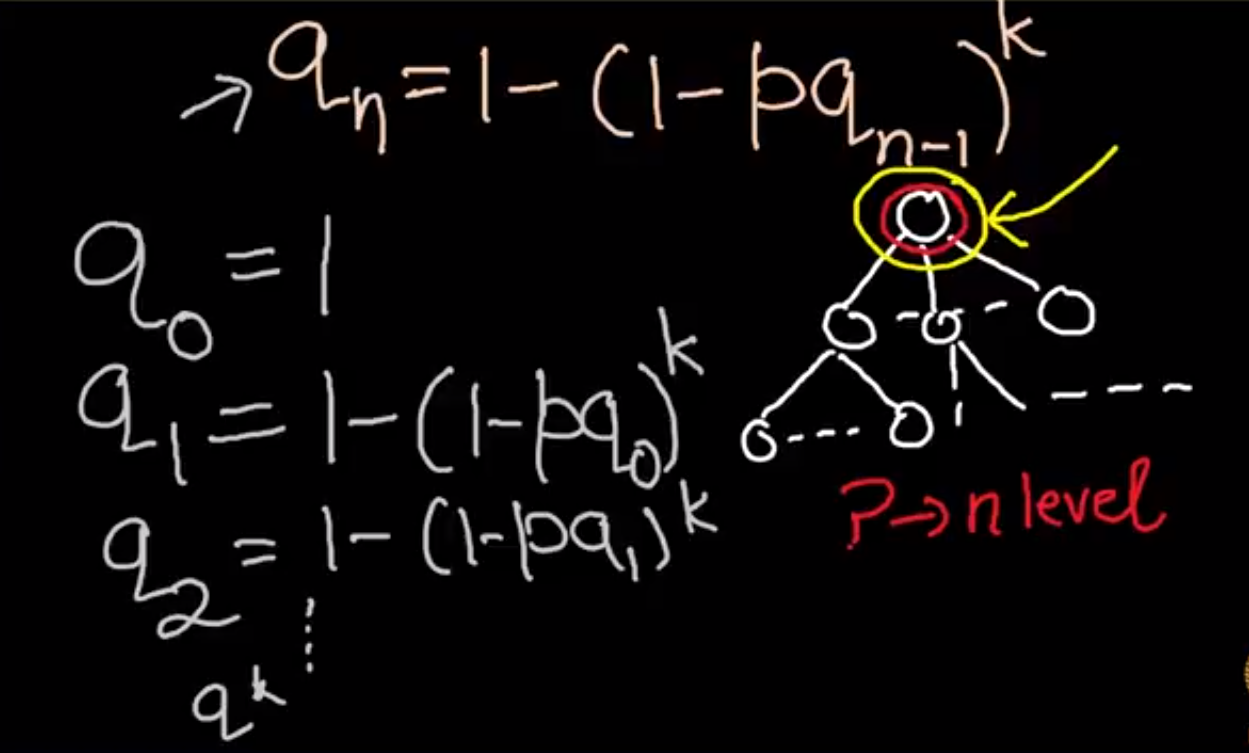 → qₙ = 1 - (1 - pqₙ₋₁)ᵏ
q₀ = 1
q₁ = 1 - (1 - pq₀)ᵏ
q₂ = 1 - (1 - pq₁)ᵏ
? → n level
qᵏ